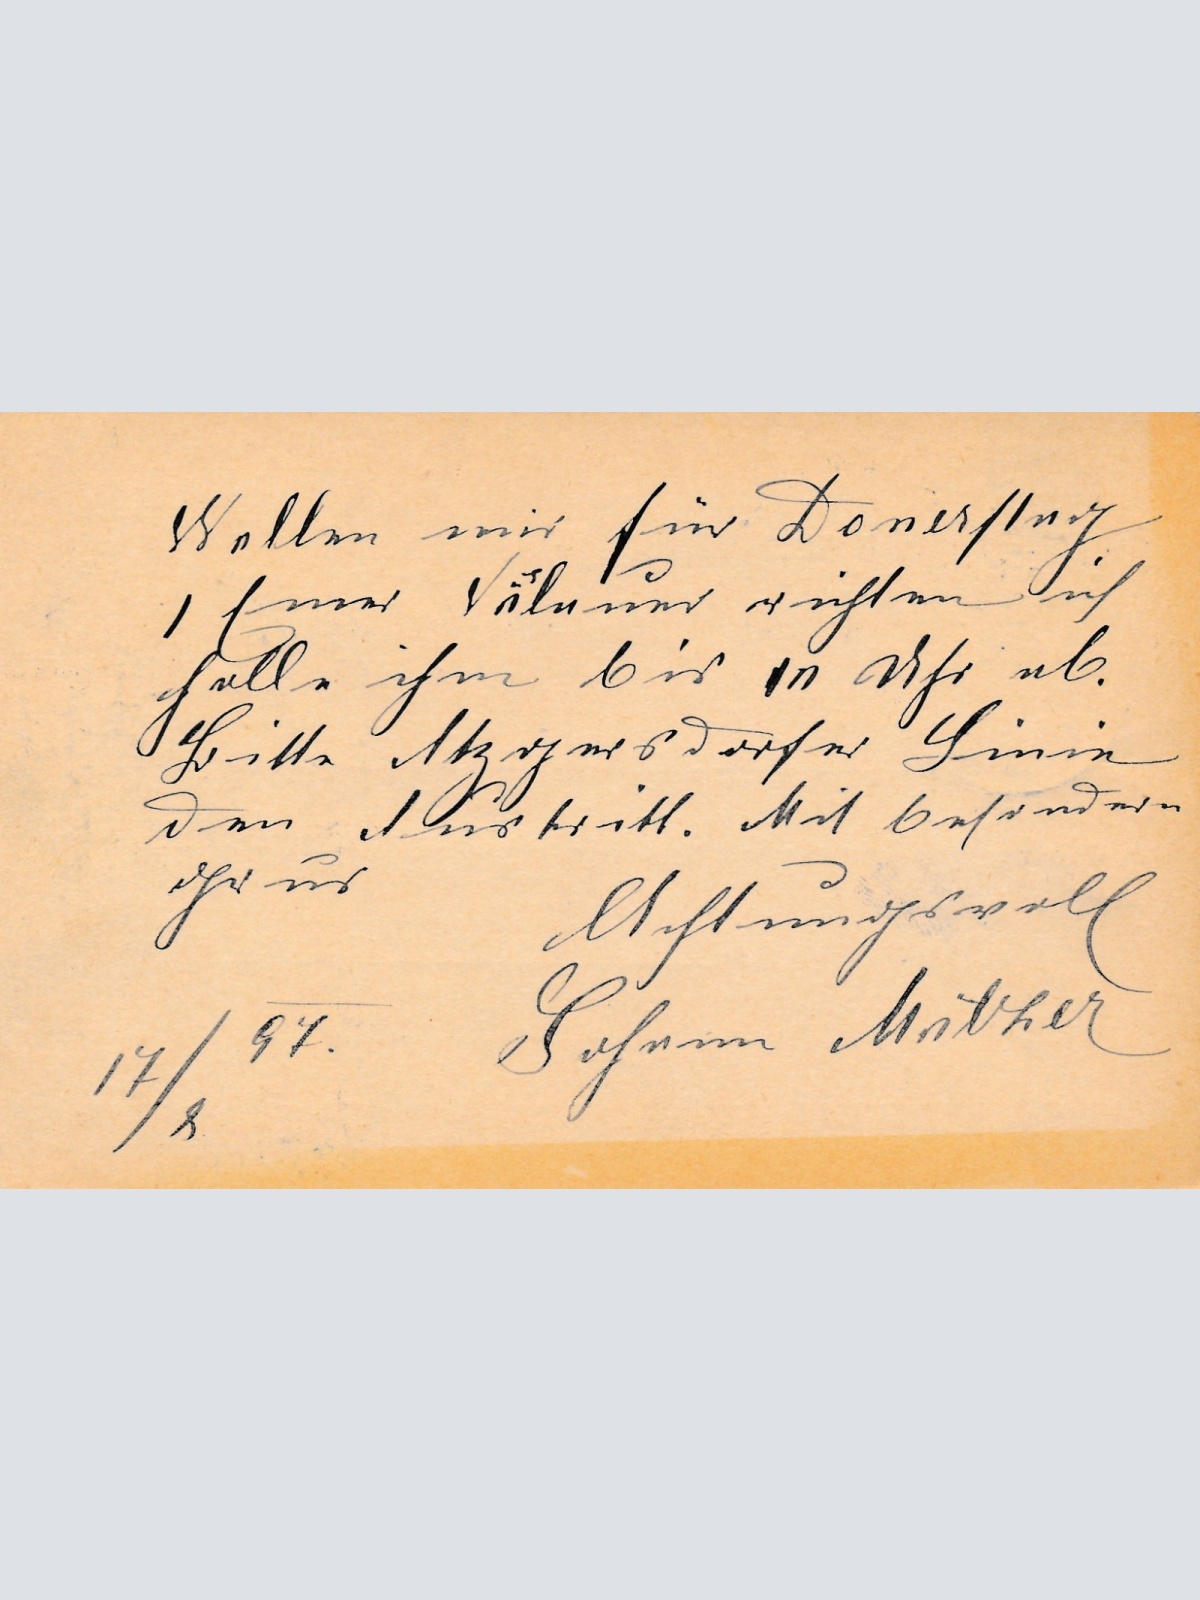 Wollen mir für Donerstag
1 Emer Vöslauer richten ich
holle ihm bis 10 Uhr ab.
Bitte Atzgersdorfer Linie
den Austritt. Mit besondern
grus
Achtungsvoll
Johann
17/2 97.